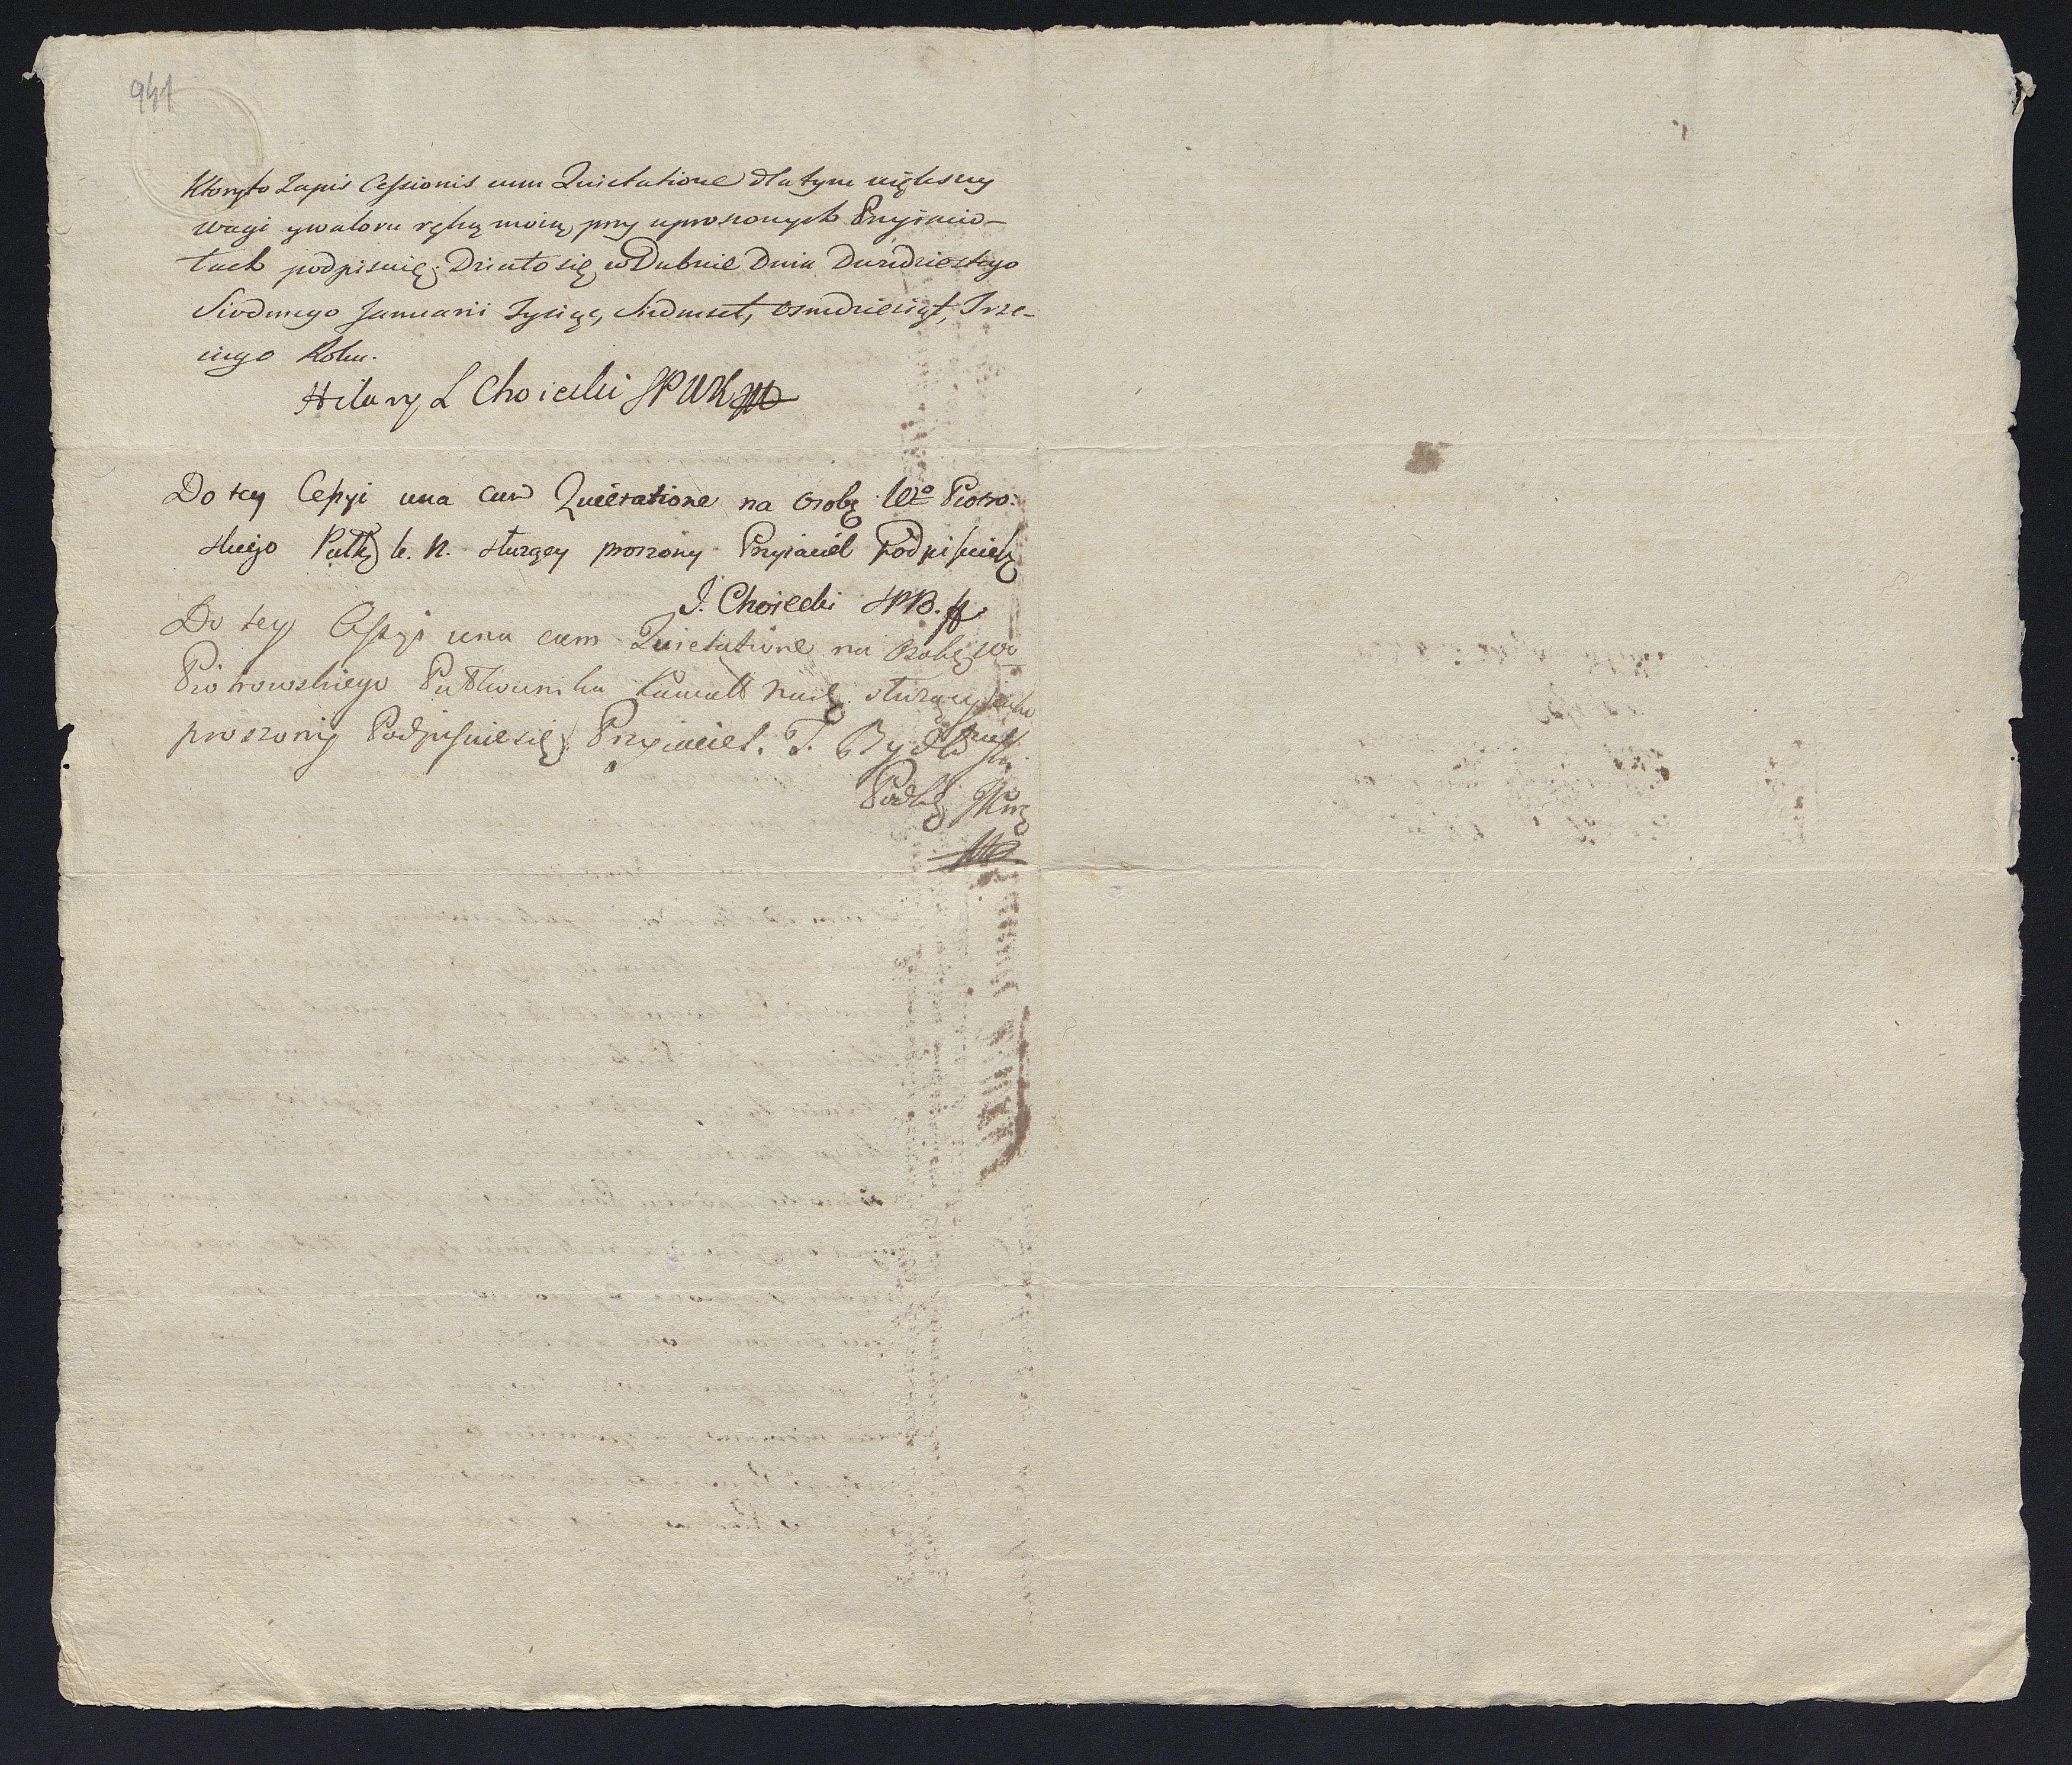 941
Ktoryto Zapis Cessionis cum Quietatione dla tym większey
wagi y waloru ręką moią przy uproszonych Przyiacio-
łach podpisuię. Działo się w Dubnie Dnia Dwudziestego
Siodmego Januarii Tysiąc, Siedmset, Osmdziesiąt, Trze-
ciego Roku.
Hilary L Choiecki SPWK
Do tey Cessyi una cum Quietatione na osobę Wo Piotro:
skiego Putk K. N. służącey proszony Przyiaciel Podpisuię
J. Choiecki SPB.
Do tey Cessyi una cum Quietatione na Osobę Wo
Piotrowskiego Pułkownika Kawall Narę służącey iako
proszony Podpisuię się Przyiaciel. T.